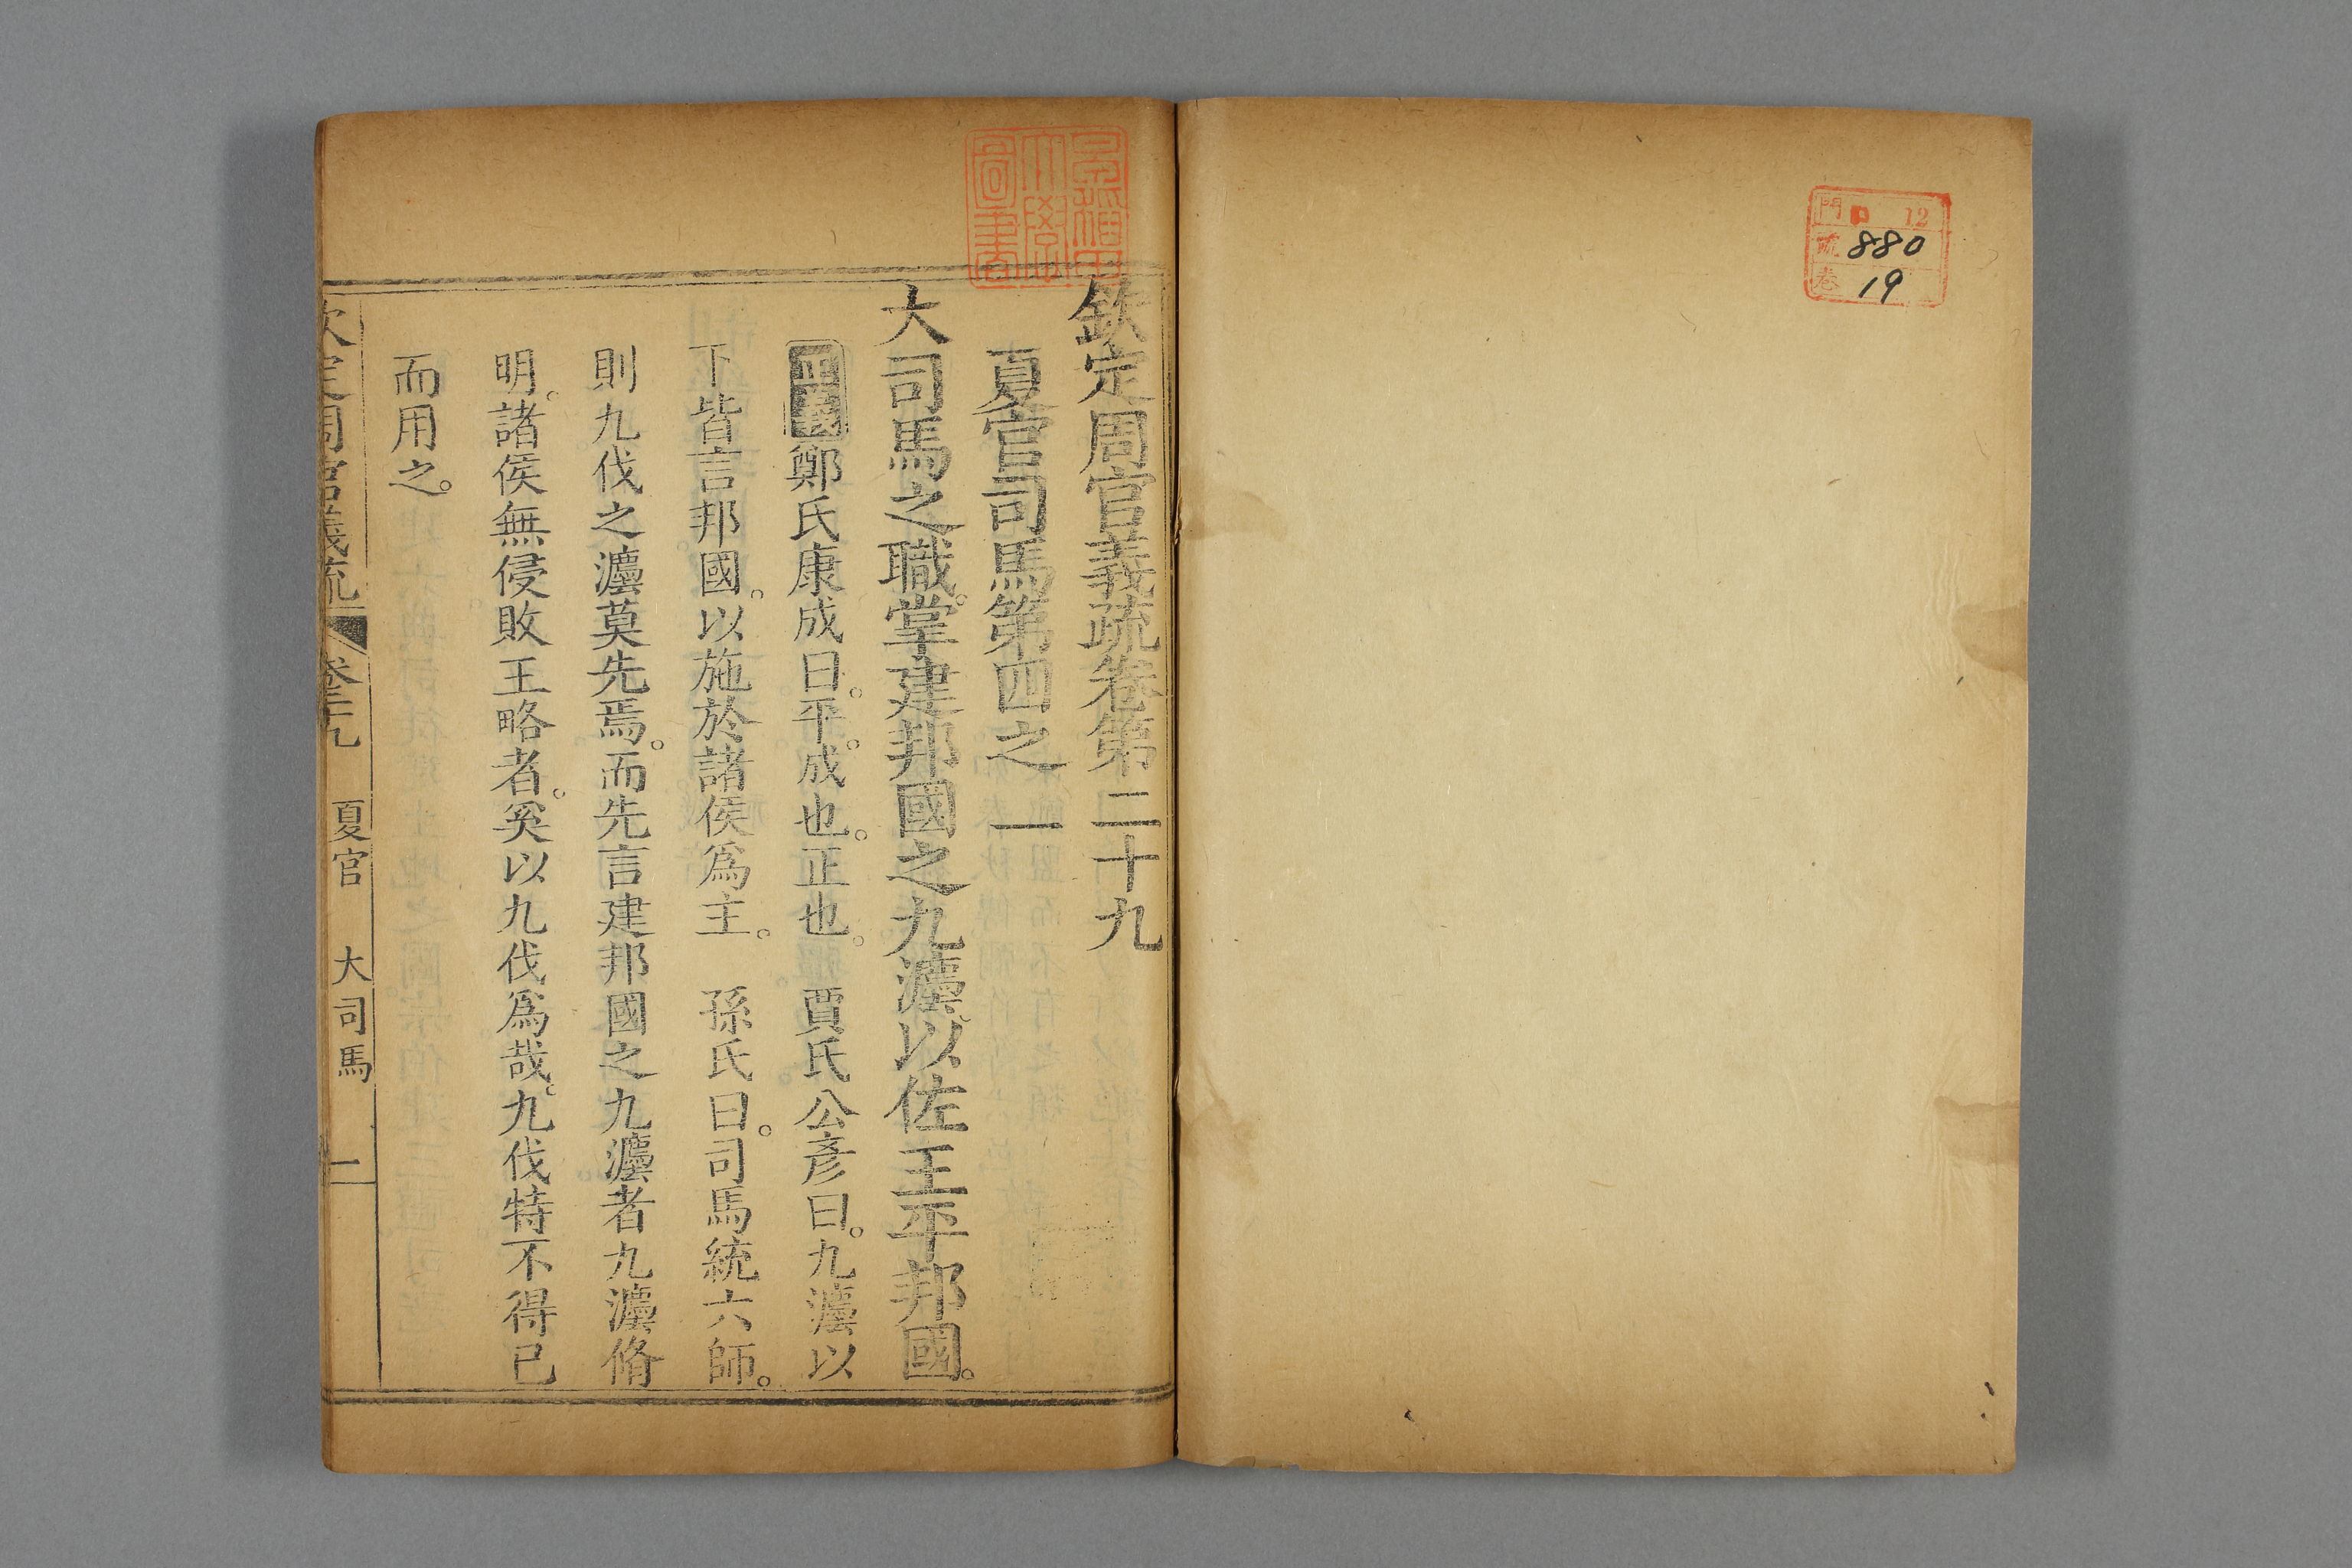 門 ロ 12
號 880
卷 19
早稲田
大學
圖書
欽定周官義疏卷第二十九
夏官司馬第四之一
大司馬之職。掌建邦國之九灋。以佐王平邦國。
正義 鄭氏康成曰。平。成也。正也。 賈氏公彥曰。九灋以
下皆言邦國。以施於諸侯爲主。 孫氏曰。司馬統六師。
則九伐之灋莫先焉。而先言建邦國之九灋者九灋脩
明。諸侯無侵敗王略者。奚以九伐爲哉。九伐特不得已
而用之。
欽定周官義疏 卷二十九 夏官 大司馬 一